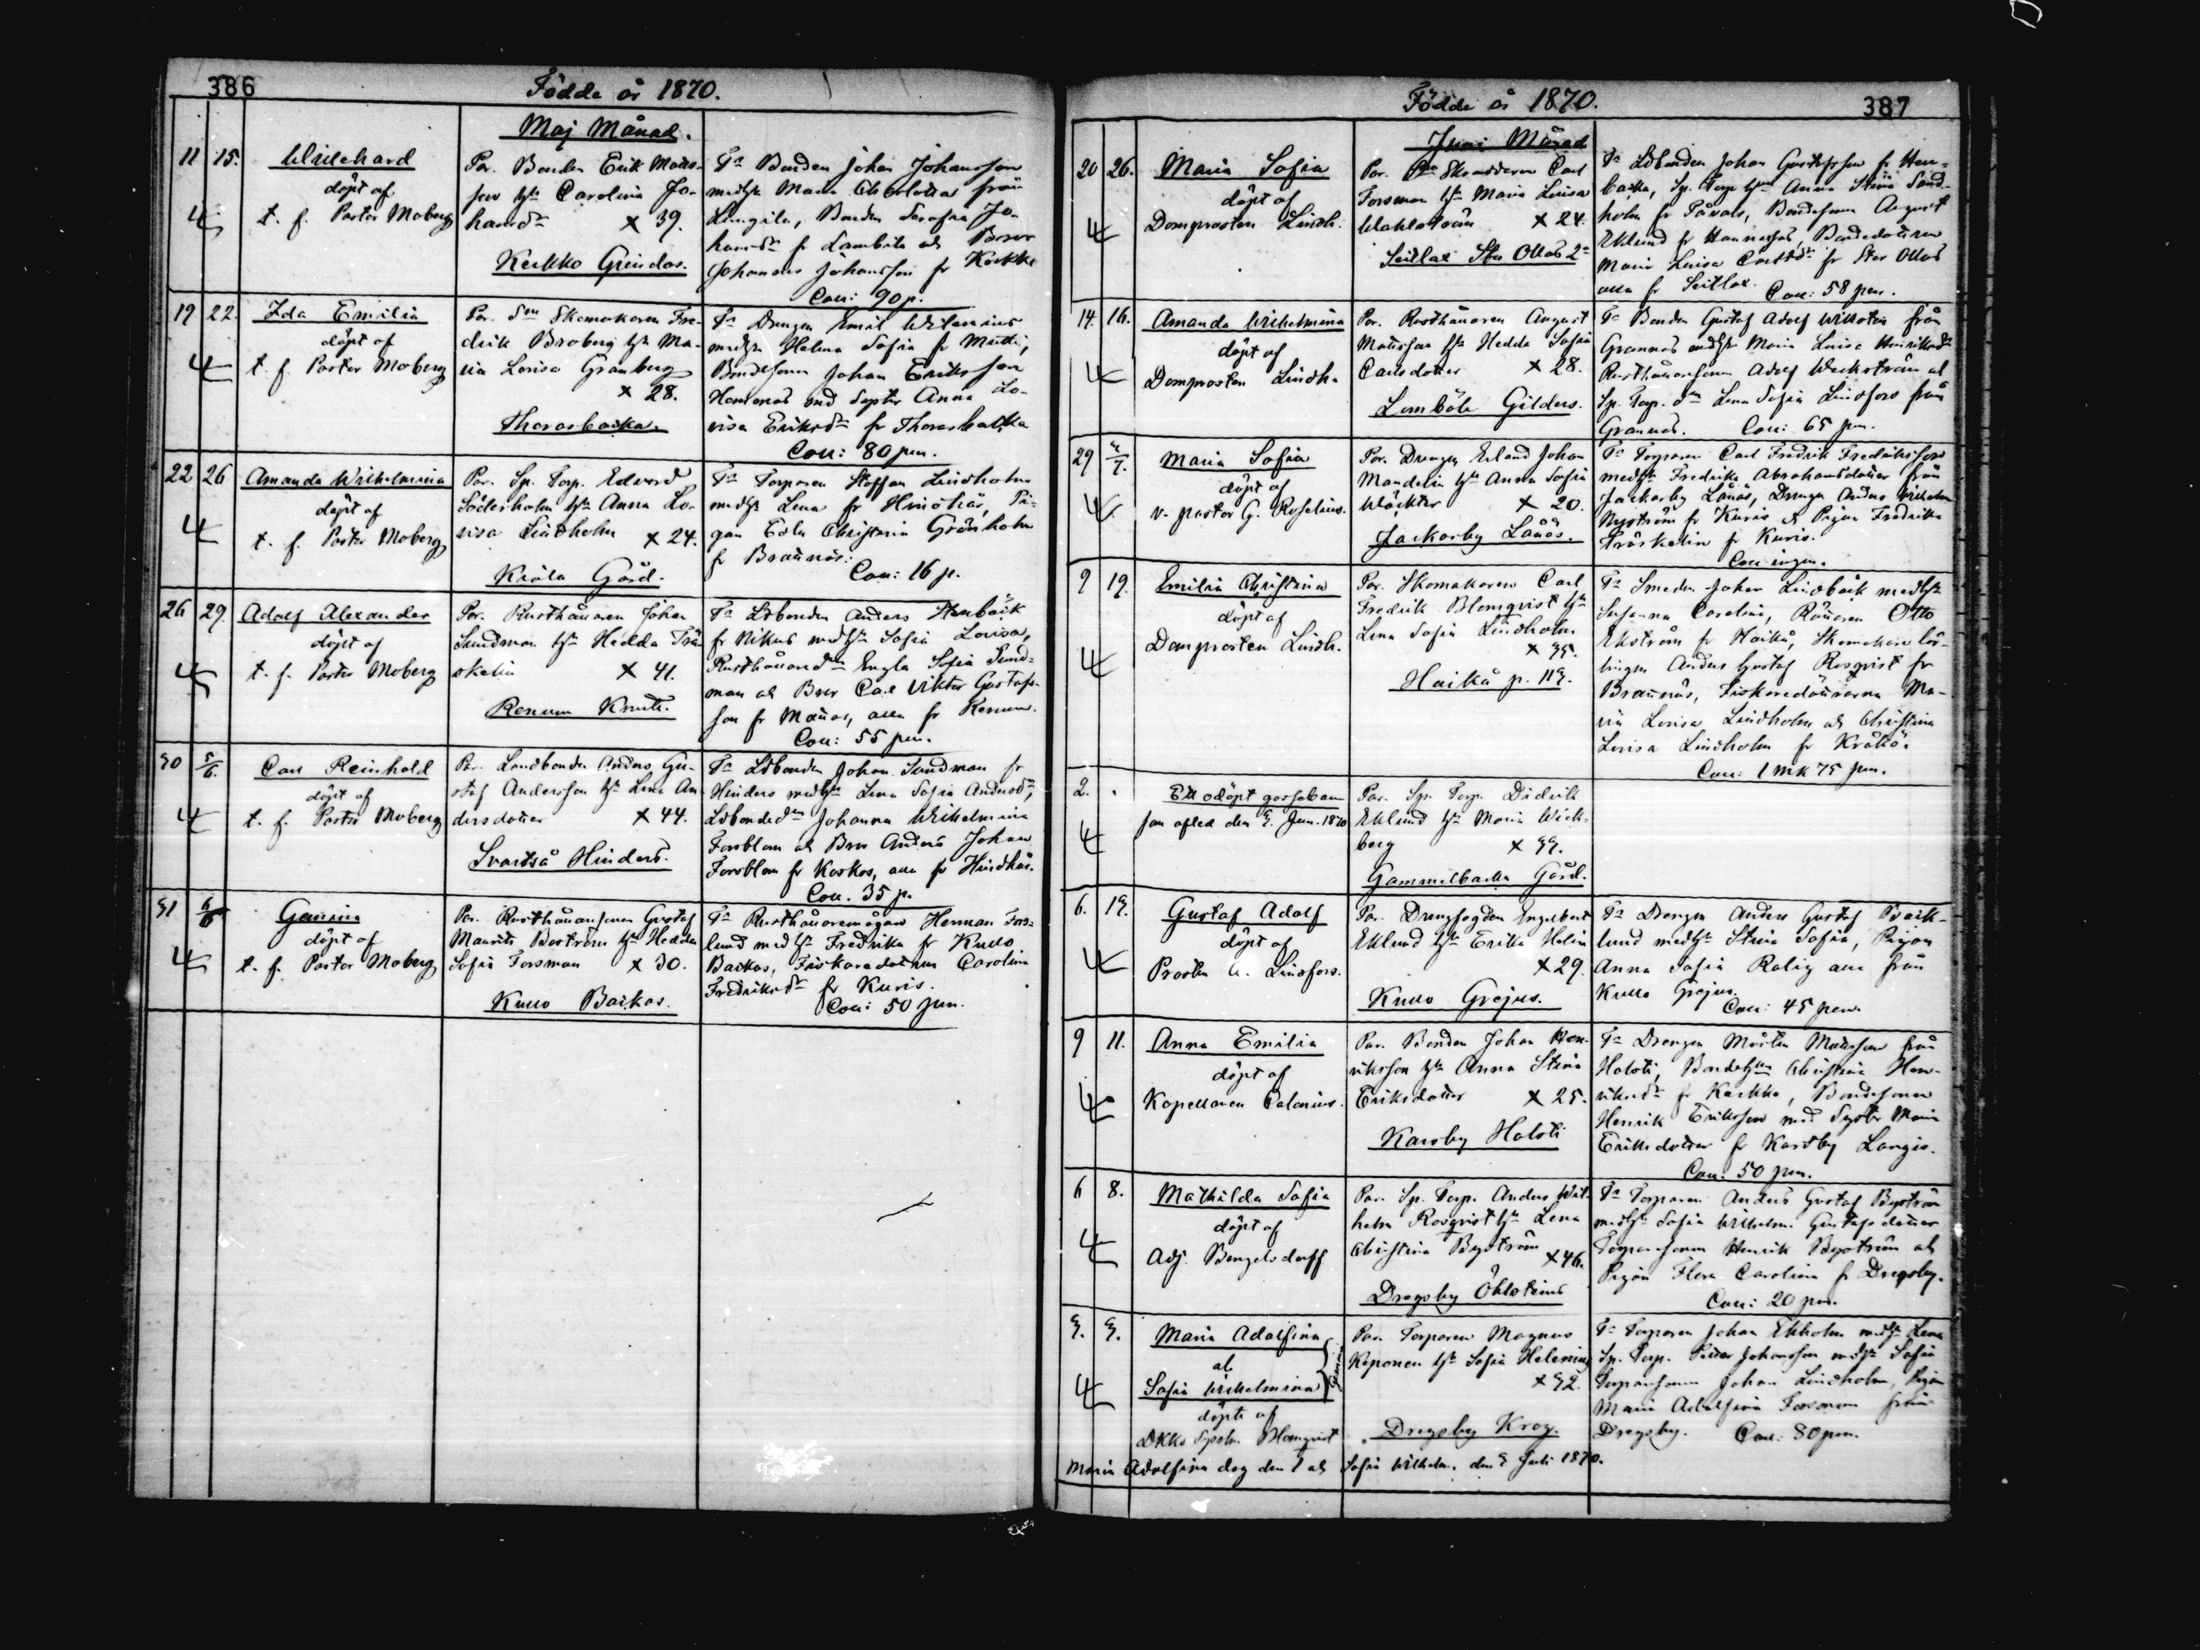 386
Födde år 1870.
Maj Månad.
11 15. Willehard
döpt af
t. f. Pastor Moberg
Par. Bonden Erik Matts-
son hu Carolina Jo-
hansdr x 39.
Kerkko Greindas.
Fr Bonden Johan Johansson
medhu Maria Charlotta från
Lungila, Bonden Serafia Jo-
hansdr fr Lambila och Broor
Johannes Johansson fr Kerkko
Coll: 90 p.
19 22. Ida Emilia
döpt af
t. f. Pastor Moberg
Par. Sn Skomakaren Fre-
drik Broberg hu Ma-
ria Lovisa Granberg
x 28.
Thorasbacka.
Fr Drengen Emil Wilenius
medhu Helena Sofia fr
Bondesonen Johan Eriksson
med Syster Anna Lo-
visa Eriksdr fr Thorasbacka
Coll: 80 pen.
22 26 Amanda Wilhelmina
döpt af
t. f. Pastor Moberg
Par. Sp. Torp. Edvard
Söderholm hu Anna Lo-
visa Lindholm x 24.
Kråkö Gård.
Fr Torparen Staffan Lindholm
medhu Lena fr Hindhår, Pi-
gan Edla Christina Grönholm
fr Brattnäs.
Coll: 16 p.
26 29. Adolf Alexander
döpt af
t. f. Pastor Moberg
Par. Rusthållaren Johan
Sundman hu Hedda Trä-
skelin x 41.
Renum Knuts.
Fr Ldbonden Anders Stenbäck
fr Nikus medhu Sofia Lovisa,
Rusthållaredn Engla Sofia Sund-
man och Bror Carl Viktor Gustafs-
son fr Mattas, alla fr Renum.
Coll: 55 pen.
30 5/6. Carl Reinhold
döpt af
t. f. Pastor Moberg
Par. Landbonden Anders Gu-
staf Andersson hu Lena An-
dersdotter x 44.
Svartså Hinders.
Fr Ldbonden Johan Sundman fr
Hinders medhu Lena Sofia Andersdr,
Ldbondedn Johanna Wilhelmina
Forsblom och Bror Anders Johan
Forsblom fr Koskos, alla fr Hindhår.
Coll. 35 p.
31 6/6 Gemina
döpt af
t. f. Pastor Moberg
Par. Rusthållaresonen Gustaf
Maurits Boström hu Hedda
Sofia Forsman x 30.
Kullo Backas.
Fr Rusthållaremågen Herman Fors-
lund medhu Fredrika fr Kullo
Backas, Fiskaredottren Carolina
Fredriksdr fr Kuris.
Coll: 50 pen.
Födde år 1870.
387
Juni Månad
20 26. Maria Sofia
döpt af
Domprosten Lindh.
Par. Skräddaren Carl
Forsman hu Maria Lovisa
Wahlström x 24.
Seitlax Stor Ollas 2
Fr Ldbonden Johan Gustafsson fr Hen-
backa, Sp. Torp hun Anna Stina Sand-
holm fr Påvals, Bondesonen August
Eklund fr Hannusas, Bondedottren
Maria Lovisa Carlsdr fr Stor Ollas
alla fr Seitlax. Coll: 58 pen.
14. 16. Amanda Wilhelmina
döpt af
Domprosten Lindh.
Par. Rusthållaren August
Mattsson hu Hedda Sofia
Carlsdotter x 28.
Lomböle Gilders.
Fr Bonden Gustaf Adolf Willstén från
Grannas medhu Maria Lovisa Henriksdr
Rusthållaresonen Adolf Weckström och
Sp. Torp. dn Lena Sofia Lindfors från
Grannas. Coll: 65 pen.
29 3/7. Maria Sofia
döpt af
v. pastor G. Roselius.
Par. Drengen Erland Johan
Mandelin hu Anna Sofia
Wäckter x 20.
Jackarby Lånäs.
Fr Torparen Carl Fredrik Fredriksson
medhu Fredrika Abrahamsdotter från
Jackarby Lånäs, Drengen Anders Wilhelm
Nyström fr Kuris och Pigan Fredrika
Träskelin fr Kuris.
Coll ingen.
9 19. Emilia Christina
döpt af
Domprosten Lindh.
Par. Skomakaren Carl
Fredrik Blomqvist hu
Lena Sofia Lindholm
x 35.
Haikå p. 113.
Fr Smeden Johan Lindbäck medhu
Susanna Carolina, Rättaren Otto
Ekström fr Haikå, Skomakare lär-
lingen Anders Gustaf Rosqvist fr
Brattnäs, Fiskaredöttrarna Ma-
ria Lovisa Lindholm och Christina
Lovisa Lindholm fr Kråkö.
Coll: 1 mk 75 pen.
2. . Ett odöpt gossebarn
som afled den 3. Jun. 1870
Par. Sp. Torp. Didrik
Eklund hu Maria Wick-
berg x 33.
Gammelbacka Gård.
6. 19. Gustaf Adolf
döpt af
Prosten A. Lindfors.
Par. Drengfogden Engelbert
Eklund hu Erika Helin
x 29.
Kullo Grejus.
Fr Drengen Anders Gustaf Back-
lund medhu Stina Sofia, Pigan
Anna Sofia Rolig alla från
Kullo Grejus.
Coll: 45 pen.
9 11. Anna Emilia
döpt af
Kapellanen Calonius.
Par. Bonden Johan Hen-
riksson hu Anna Stina
Eriksdotter x 25.
Karsby Holsti
Fr Drengen Mårten Mattsson från
Holsti, Bondehun Christina Hen-
riksdr fr Kerkko, Bondesonen
Henrik Eriksson med Syster Maria
Eriksdotter fr Karsby Langis.
Coll: 50 pen.
6 8. Mathilda Sofia
döpt af
Adj. Bengelsdorff
Par. Sp. Torp. Anders Wil-
helm Rosqvist hu Lena
Christina Byström x 46.
Dregsby Öhlstens
Fr Torparen Anders Gustaf Byström
medhu Sofia Wilhelm. Gustafsdotter
Torparesonen Henrik Byström och
Pigan Flora Carolina fr Dregsby.
Coll: 20 pen.
3. 3. Maria Adolfina
och
Sofia Wilhelmina
döpte af
Dkkn Blomqvist
Par. Torparen Magnus
Reponen hu Sofia Helenius
x 32.
Dregsby Krog.
Fr Torparen Johan Ekholm medhu Lena
Sp. Torp. Petter Johansson medhu Sofia
Torparesonen Johan Lindholm, Pigan
Maria Adolfina Forsman från
Dregsby. Coll: 80 pen.
Maria Adolfina dog den 1 och Sofia Wilhelm. den 3 Juli 1870.